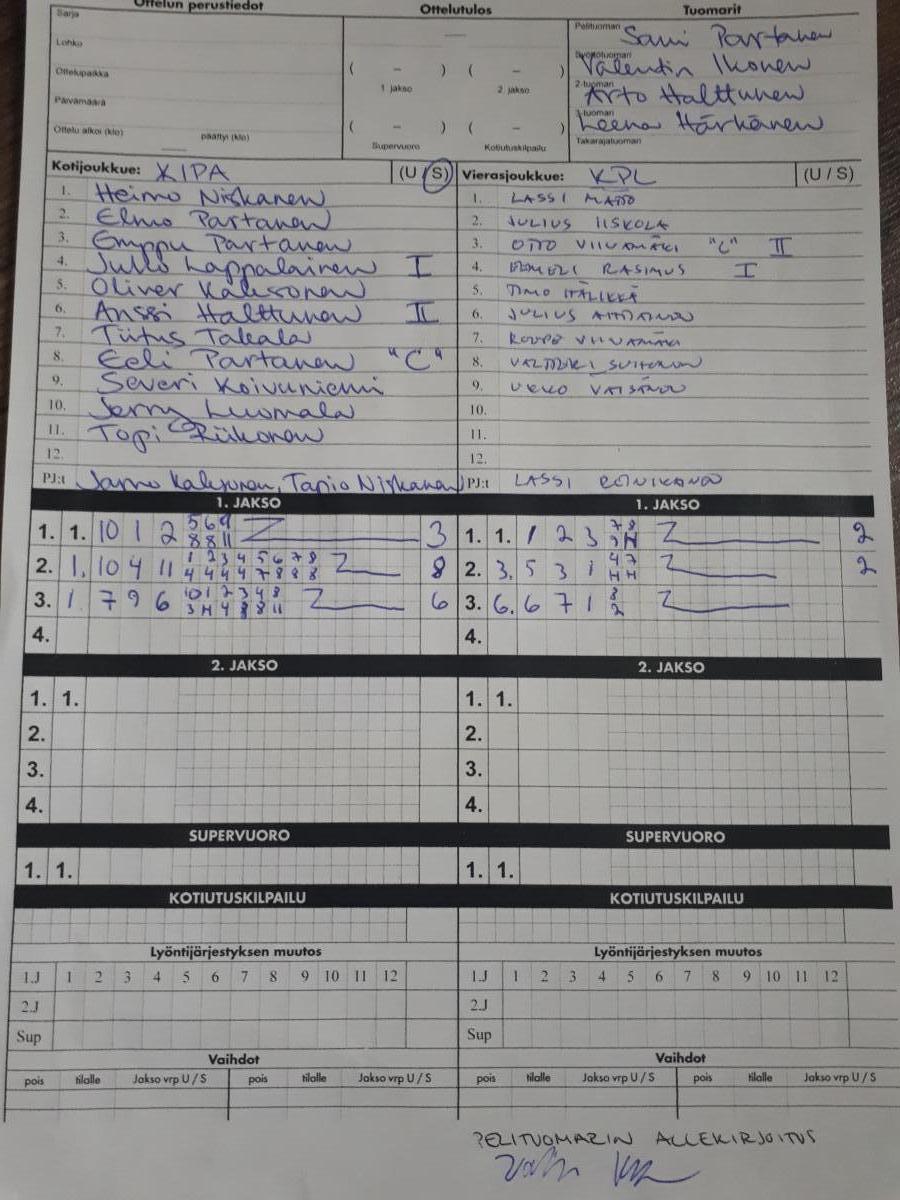 Ottelun perustiedot Ottelutulos Tuomarit
Sarja
Lohko
Ottelupaikka
Päivämäärä
Ottelu alkoi (klo) päättyi (klo)
( – ) ( – )
1. jakso 2. jakso
( – ) ( – )
Supervuoro Kotiutuskilpailu
Pelituomari Sami Partanen
Syöttötuomari Valentin Ikonen
2-tuomari Arto Halttunen
3-tuomari Leena Härkänen
Takarajatuomari
Kotijoukkue: KIPA (U / S) Vierasjoukkue: KPL (U / S)
1. Heimo Niskanen
2. Elmo Partanen
3. Emppu Partanen
4. Julle Lappalainen I
5. Oliver
6. Anssi Halttunen II
7. Tiitus Takala
8. Eeli Partanen "C"
9. Severi Koivuniemi
10. Jerry Luomala
11. Topi Riikonen
12.
PJ:t Jarno Tapio Niskanen
1. LASSI
2. JULIUS IISKOLA
3. OTTO VIIVAMÄKI "C" II
4. RASIMUS I
5. TIMO ITÄLIKKÄ
6. JULIUS
7. ROOPE VIIVAMÄKI
8. SUITONEN
9. UKKO VÄISÄNEN
10.
11.
12.
PJ:t LASSI
1. JAKSO 1. JAKSO
1. 1. 10 1 2 5 6 9 3
8 8 11
2. 1. 10 4 11 1 2 3 4 5 6 7 8 8
4 4 4 4 7 8 8 8
3. 1 7 9 6 10 1 2 3 4 8 6
3 H 4 8 8 11
4.
1. 1. 1 2 3 7 8 2
2. 3. 5 3 1 4 7 2
H H
3. 6. 6 7 1 8
2
4.
2. JAKSO 2. JAKSO
1. 1. 1. 1.
2. 2.
3. 3.
4. 4.
SUPERVUORO SUPERVUORO
1. 1. 1. 1.
KOTIUTUSKILPAILU KOTIUTUSKILPAILU
Lyöntijärjestyksen muutos Lyöntijärjestyksen muutos
1.J 1 2 3 4 5 6 7 8 9 10 11 12 1.J 1 2 3 4 5 6 7 8 9 10 11 12
2.J 2.J
Sup Sup
Vaihdot Vaihdot
pois tilalle Jakso vrp U / S pois tilalle Jakso vrp U / S pois tilalle Jakso vrp U / S pois tilalle Jakso vrp U / S
PELITUOMARIN ALLEKIRJOITUS